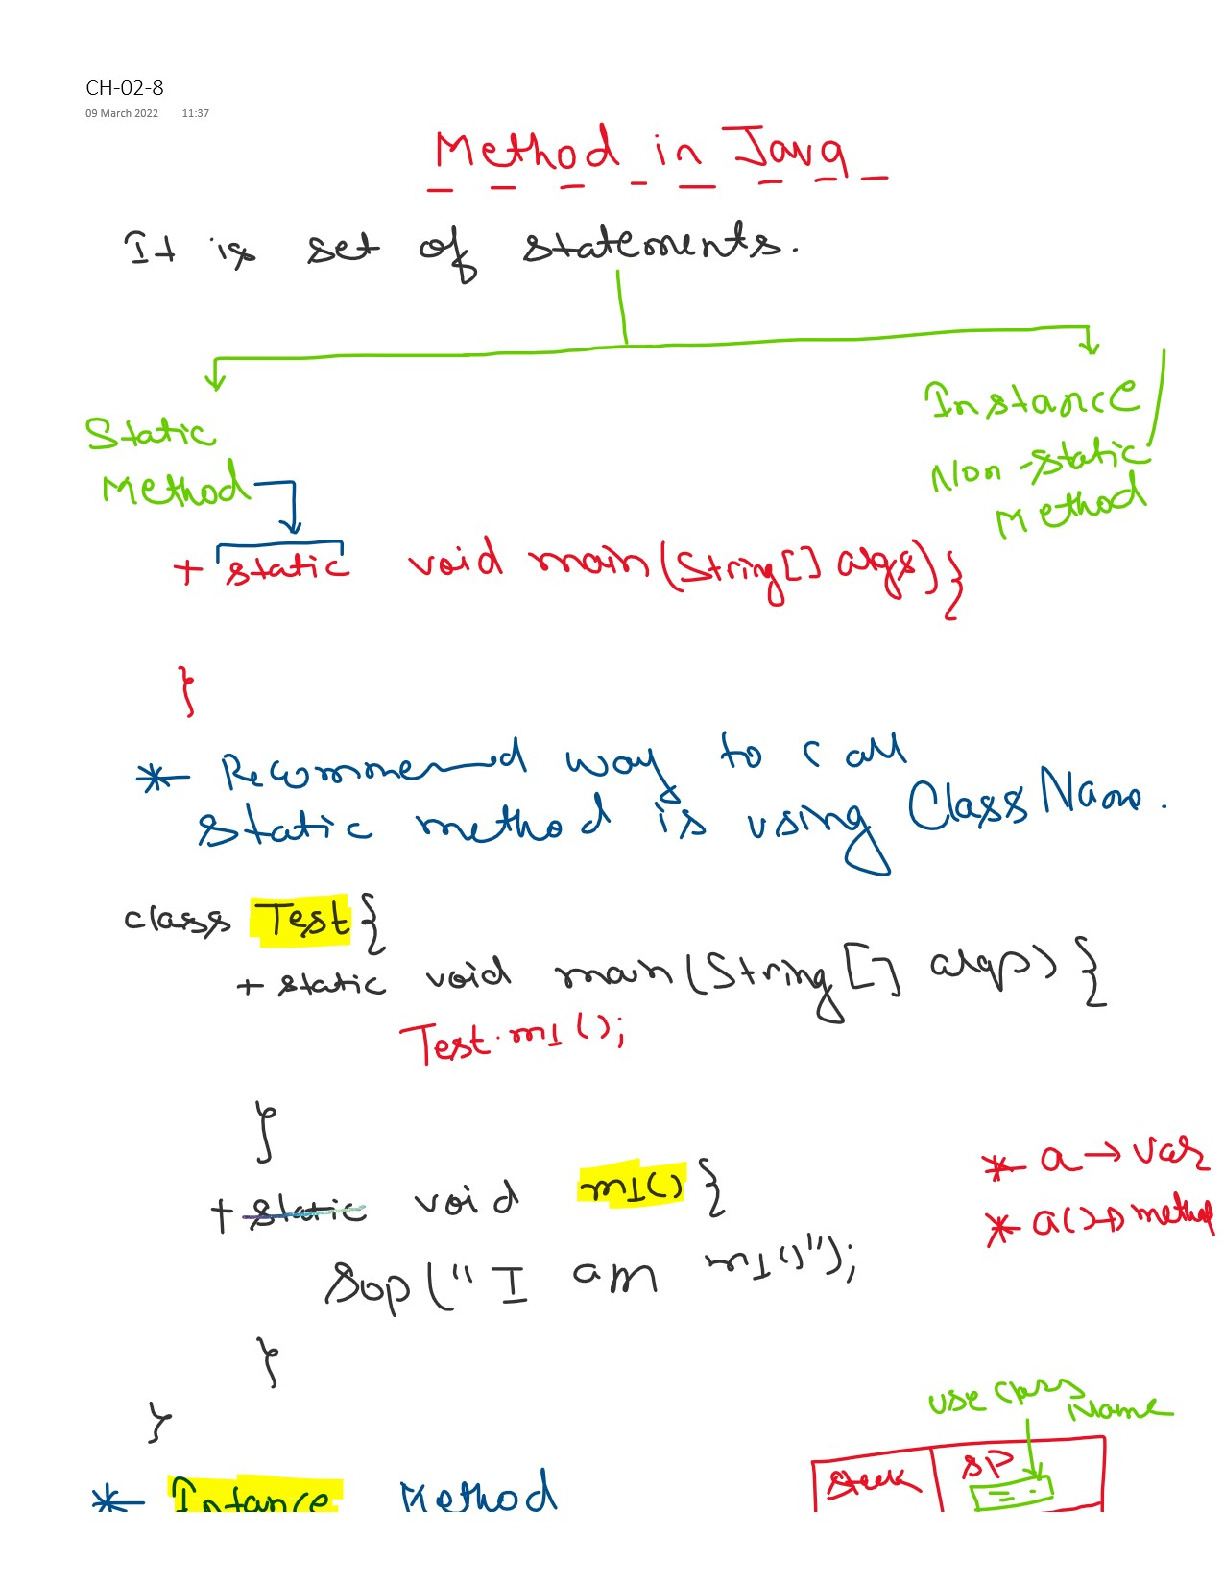 CH-02-8
09 March 2022 11:37
Method in Java
It is set of statements.
Static
Method
Instance /
Non-static
Method
+ static void main(String[] args){
}
* Recommened way to call
static method is using ClassName.
class Test{
+ static void main(String[] args){
Test.m1();
}
+ static void m1(){
Sop("I am m1()");
}
}
* a → var
* a() → method
use class Name
* Intance Method
SP